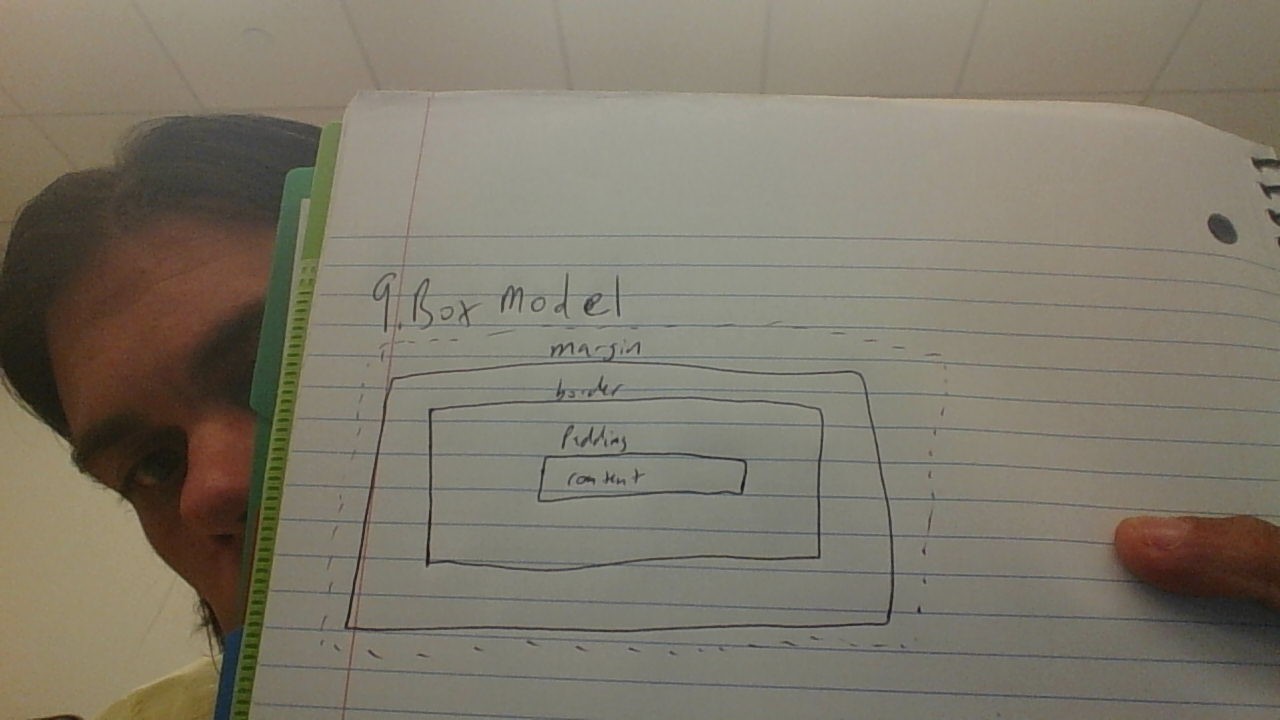 9. Box Model
margin
border
Padding
content